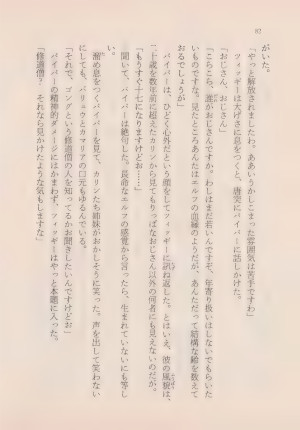 82
がいた。
「やっと解放されましたわ。ああいうかしこまった雰囲気は苦手ですわ」
フィッギーは大げさに息をつくと、唐突にパイパーに話しかけた。
「おじさん、おじさん」
「こらこら、誰がおじさんですか。わしはまだ若いんですぞ、年寄り扱いはしないでもらいた
いですな。見たところあんたはエルフの血縁のようだが、あんただって結構な齢を数えて
おるでしょうが」
パイパーは、ひどく心外だという顔をしてフィッギーに訊ね返した。とはいえ、彼の風貌は、
二十歳を数年前に超えたカリンから見てもりっぱなおじさん以外の何者にも見えないのだが。
「もうすぐ十七になりますけどお……」
聞いて、パイパーは絶句した。長命なエルフの感覚から言ったら、生まれていないにも等し
い。
溜め息をつくパイパーを見て、カリンたち姉妹がおかしそうに笑った。声を出して笑わない
にしても、バリュウとカマリアの口元もゆるんでいる。
「それで、ゴングという修道僧の人を知ってるかお聞きしたいんですけどお」
パイパーの精神的ダメージにはかまわず、フィッギーはやっと本題に入った。
「修道僧？　それなら見かけたような気もしますな」